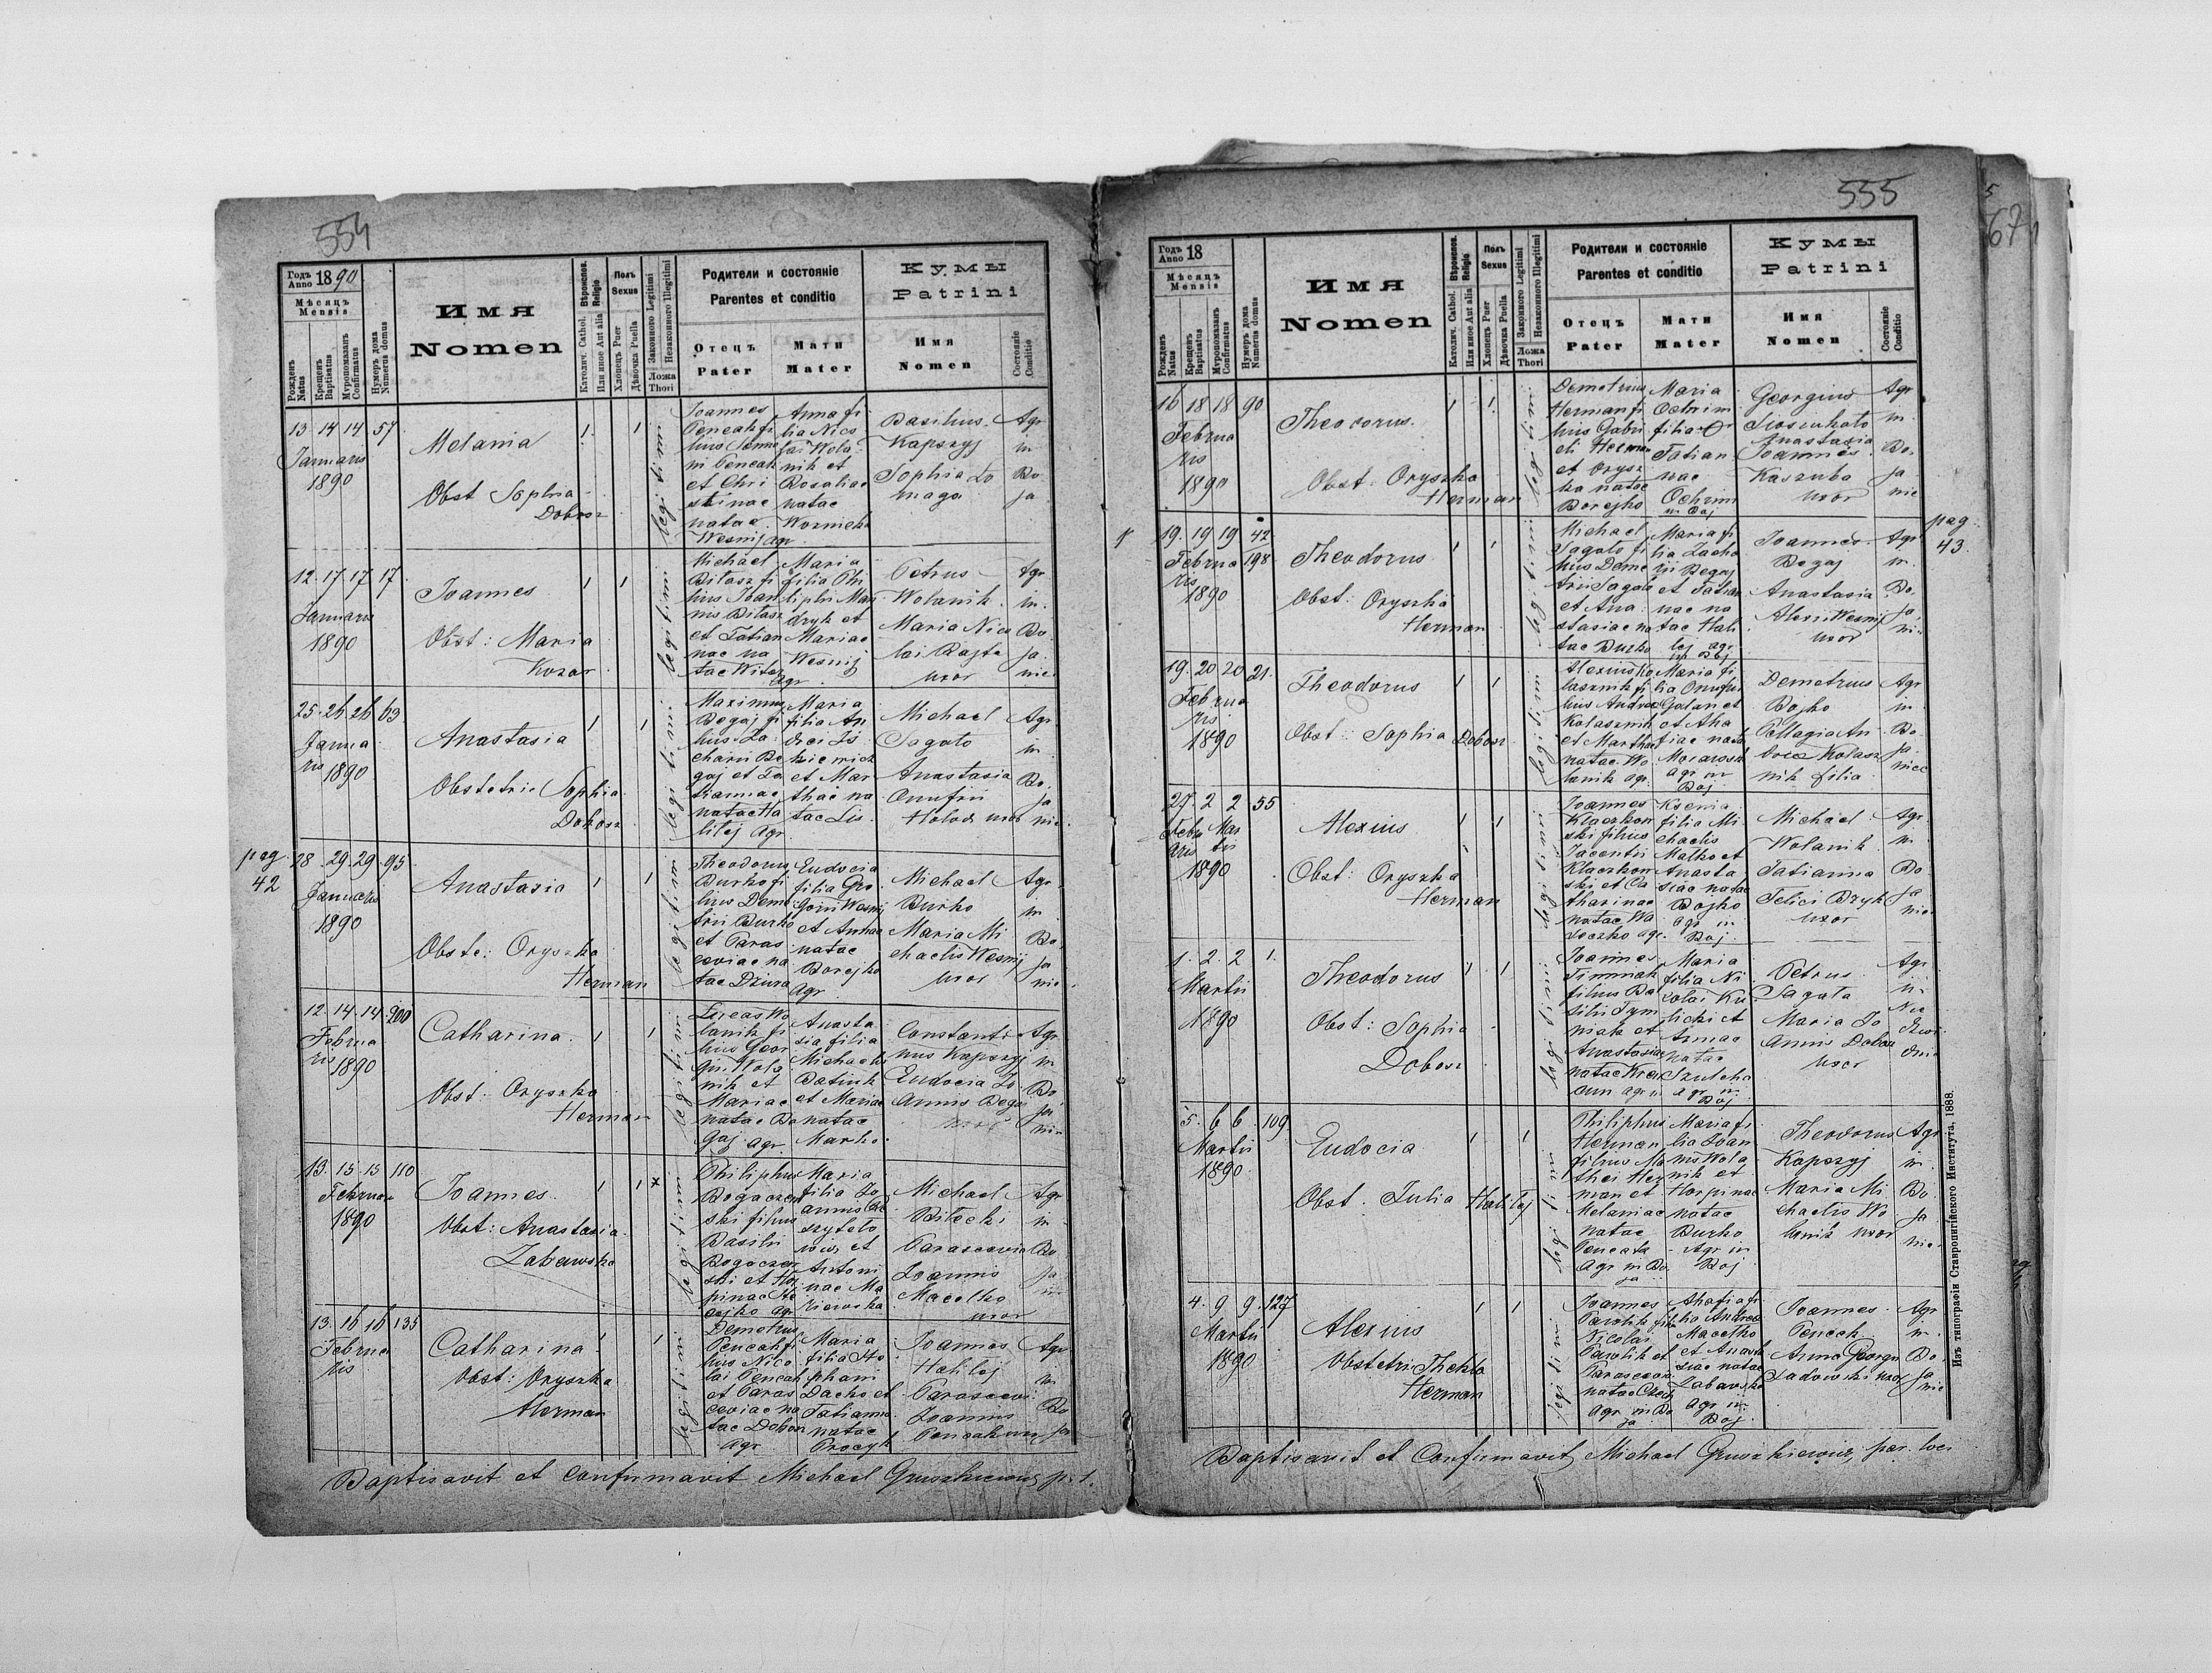 554
Годъ Anno 1890
Мѣсяцъ Mensis
Рожденъ Natus
Крещенъ Baptisatus
Муропомазанъ Confirmatus
Нумеръ дома Numerus domus
Имя
Nomen
Вѣроиспов. Religio
Католич. Cathol.
Или иное Aut alia
Полъ Sexus
Хлопецъ Puer
Дѣвочка Puella
Законного Legitimi
Незаконного Illegitimi
Ложа Thori
Родители и состояніе
Parentes et conditio
Отецъ Pater
Мати Mater
Кумы
Patrini
Имя Nomen
Состояніе Conditio
13 14 14 57
Januaris
1890
Melania
Obst Sophia
Dobosz
legitimi
Joannes
Pencak fi
lius
ni Pencak
et Chri
stinae
natae
Wesnij agr
Anna fi
lia Nico
lai Wola
nik et
Rosaliae
natae
Basilius
Kapszyj
Sophia Lo
maga
Agr
in
Bo
ja
12 17 17 17
Januaris
1890
Joannes
Obst: Maria
Kozar
legitimi
Michael
Bilasz fi
lius Joan
nis Bilasz
et Tatian
nae na
tae
agr
Maria
filia Phi
liphi Man
dryk et
Mariae
Wesnij
Petrus
Wolanik
Maria Nico
lai Rajta
uxor
Agr
in
Bo
ja
nie
25 26 26 63
Janua
ris 1890
Anastasia
Obstetric Sophia
Dobosz
legitimi
Maximus
Begaj fi
lius Za
charii Be
gaj et
natae Ha
lilej agr
Maria
filia An
drei
et Mar
thae na
tae Lis
Michael
Sagato
Anastasia
Onufrii
Holod uxor
Agr
in
Bo
ja
nie
pag
42
28 29 29 95
Januaris
1890
Anastasia
Obste: Oryszka
Herman
legitimi
Theodorus
Burko fi
lius Deme
trii Burko
et Paras
ceviae na
tae Dziura
Eudocia
filia Gre
gorii Wesnij
et Annae
natae
Borejko
agr
Michael
Burko
Maria Mi
chaelis Wesnij
uxor
Agr
in
Bo
ja
nie
12 14 14 200
Februa
ris 1890
Catharina
Obst: Oryszka
Herman
legitimi
Lucas Wo
lanik fi
lius Geor
gii Wola
nik et
Mariae
natae Be
gaj agr
Anasta
sia filia
Michaelis
Batiuk
et Mariae
natae
Marko
Constanti
nus Kapszyj
Eudocia Jo
annis Bega
uxor
Agr
in
Bo
ja
nie
13 15 15 110
Februar
1890
Joannes
Obst: Anastasia
Zabawska
legitimi
Philiphus
Bogaczew
ski filius
Basilii
Bogaczew
ski et
agr
Maria
filia Jo
annis
et
Antoni
nae
Michael
Bilecki
Parascevia
Joannis
Macelko
uxor
Agr
in
Bo
ja
13 16 16 135
Februa
ris
Catharina
Obst: Oryszka
Herman
legitimi
Demetrius
Pencak fi
lius Nico
lai Pencak
et Paras
ceviae na
tae Dobosz
agr
Maria
filia Ste
phani
Dacko et
Tatianna
natae
Procyk
Joannes
Halilej
Parascevi
Joannis
Pencak uxor
Agr
in
Bo
ja
Baptisavit et Confirmavit Michael Gruszkiewicz p. l.
555
Годъ Anno 18
Мѣсяцъ Mensis
Рожденъ Natus
Крещенъ Baptisatus
Муропомазанъ Confirmatus
Нумеръ дома Numerus domus
Имя
Nomen
Вѣроиспов. Religio
Католич. Cathol.
Или иное Aut alia
Полъ Sexus
Хлопецъ Puer
Дѣвочка Puella
Законного Legitimi
Незаконного Illegitimi
Ложа Thori
Родители и состояніе
Parentes et conditio
Отецъ Pater
Мати Mater
Кумы
Patrini
Имя Nomen
Состояніе Conditio
16 18 18 90
Februa
ris
1890
Theodorus
Obst: Oryszka
Herman
legitimi
Demetrius
Herman fi
lius Gabri
eli Herman
et Orysz
ka natae
Borejko
Maria
Ochrim
filia
Tatian
nae
Ochrim
in Boj
Georgius
Anastasia
Joannes
Kaszuba
uxor
Agr
in
Bo
ja
nie
19 19 19 42
198
Februa
ris
1890
Theodorus
Obst: Oryszka
Herman
legitimi
Michael
Sagato fi
lius Deme
trii Sagato
et Ana
stasiae na
tae Burko
Maria fi
lia Zacha
rii Begaj
et Tatian
nae na
tae Hali
lej agr
in Boj
Joannes
Begaj
Anastasia
Alexii Wesnij
uxor
Agr
in
Bo
ja
nie
pag
43
19 20 20 21
Februa
ris
1890
Theodorus
Obst: Sophia Dobosz
legitimi
Alexius Ko
lasznik fi
lius Andreae
Kolasznik
et Marthae
natae Wo
lanik agr
Maria fi
lia Onufrii
Galan et
Aha
fiae natae
agr in
Boj
Demetrius
Bojko
Pellagia An
dreae Kolasz
nik filia
Agr
in
Bo
ja
niec
27 2 2 55
Febru Mar
aris tis
1890
Alexius
Obst: Oryszka
Herman
legitimi
Joannes
Klaczkow
ski filius
Jacentii
Klaczkow
ski et Ca
tharinae
natae
agr
Ksenia
filia Mi
chaelis
Malko et
Anasta
siae natae
Bojko
agr in
Boj
Michael
Wolanik
Tatianna
Felici Bzyk
uxor
Agr
in
Bo
ja
nie
1 2 2 1
Martii
1890
Theodorus
Obst: Sophia
Dobosz
legitimi
Joannes
Timniak
filius Ba
silii Tym
niak et
Anastasiae
natae
agr
Maria
filia Ni
colai Ku
licki et
Annae
natae
agr in
Boj
Petrus
Sagata
Maria Jo
annis Dobosz
uxor
Agr
in
5 6 6 109
Martii
1890
Eudocia
Obst: Julia Halilej
legitimi
Philiphus
Herman
filius Ma
thei Her
man et
Melaniae
natae
Pencata
Agr in Bo
ja
Maria fi
lia Joan
nis Wola
nik et
Horpinae
natae
Burko
Agr in
Boj
Theodorus
Kapszyj
Maria Mi
chaelis Wo
lanik uxor
Agr
in
Bo
ja
nie
4 9 9 127
Martii
1890
Alexius
Obstetri: Thekla
Herman
legitimi
Joannes
Pawlik fili
Nicolai
Pawlik et
Parascevi
natae
agr in Bo
ja
Ahafia fi
lia Andreae
Macelko
et Anasta
siae natae
Zabawska
agr in
Boj
Joannes
Pencak
Anna Georgii
Sadowski uxor
Agr
in
Bo
ja
nie
Baptisavit et Confirmavit Michael Gruszkiewicz, par. loci
Изъ типографіи Ставропигійского Института, 1888.
67